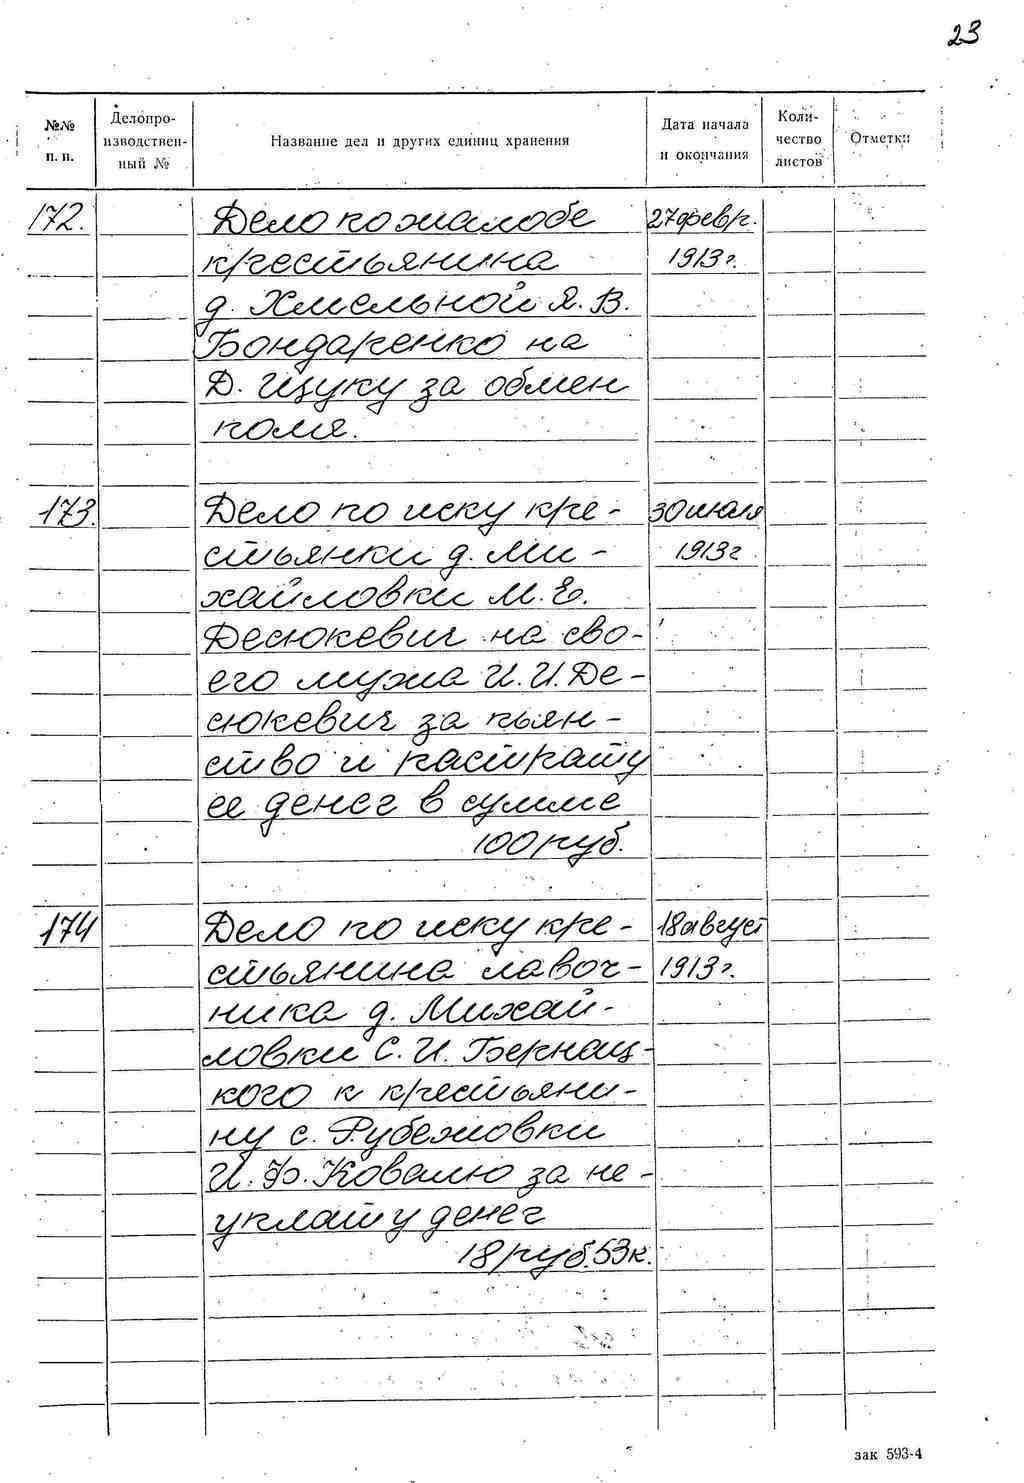 23
№№ п. п.
Делопроизводственный №
Название дел и других единиц хранения
Дата начала и окончания
Количество листов
Отметки
172. Дело по жалобе 27 февр.
крестьянина 1913 г.
д. Хмельной Я. В.
Бондаренко на
Д. Щуку за обмен
поля.
173. Дело по иску кре- 30 июля
стьянки д. Ми- 1913 г.
хайловки М. Е.
Десюкевич на сво-
его мужа И. И. Де-
сюкевич за пьян-
ство и растрату
ее денег в сумме
100 руб.
174 Дело по иску кре- 18 август
стьянина лавоч- 1913 г.
ника д. Михай-
ловки С. И. Бернац-
кого к крестьяни-
ну с. Рубежовки
И. Ф. Ковалю за не-
уплату денег
18 руб. 53 к.
зак 593-4